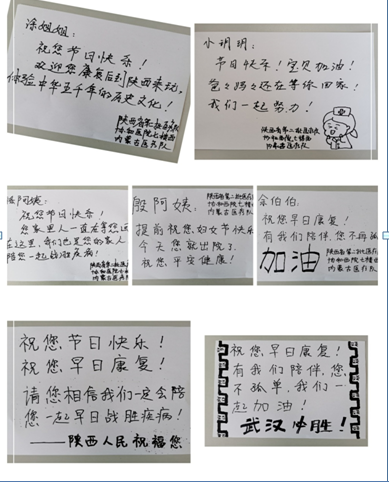 涂姐姐：
祝您节日快乐！
欢迎您康复后到陕西来玩，
体验中华五千年的历史文化！
陕西省第二批医疗队
协和西院七楼西
内蒙古医疗队
小玥玥：
节日快乐！宝贝加油！
爸爸妈妈还在等你回家！
我们一起努力！
陕西省第二批医疗队
协和西院七楼西
内蒙古医疗队
阿姨：
祝您节日快乐！
您家里人一直在等您
在这里，我们也是您的家人
陪您一起战胜疾病！
内蒙古医疗队
殷阿姨：
陕西省第二批医疗队
协和西院七楼西
内蒙古医疗队
提前祝您妇女节快乐
今天您就出院了，
祝您平安健康！
余伯伯：
祝您早日康复！
有我们陪伴，您不再孤
加油
陕西省第二批医疗
协和西院七楼西
内蒙古医疗队
祝您节日快乐！
祝您早日康复！
请您相信我们一定会陪
您一起早日战胜疾病！
——陕西人民祝福您
祝您早日康复！
有我们陪伴，您
不孤单，我们一
起加油！
武汉必胜！